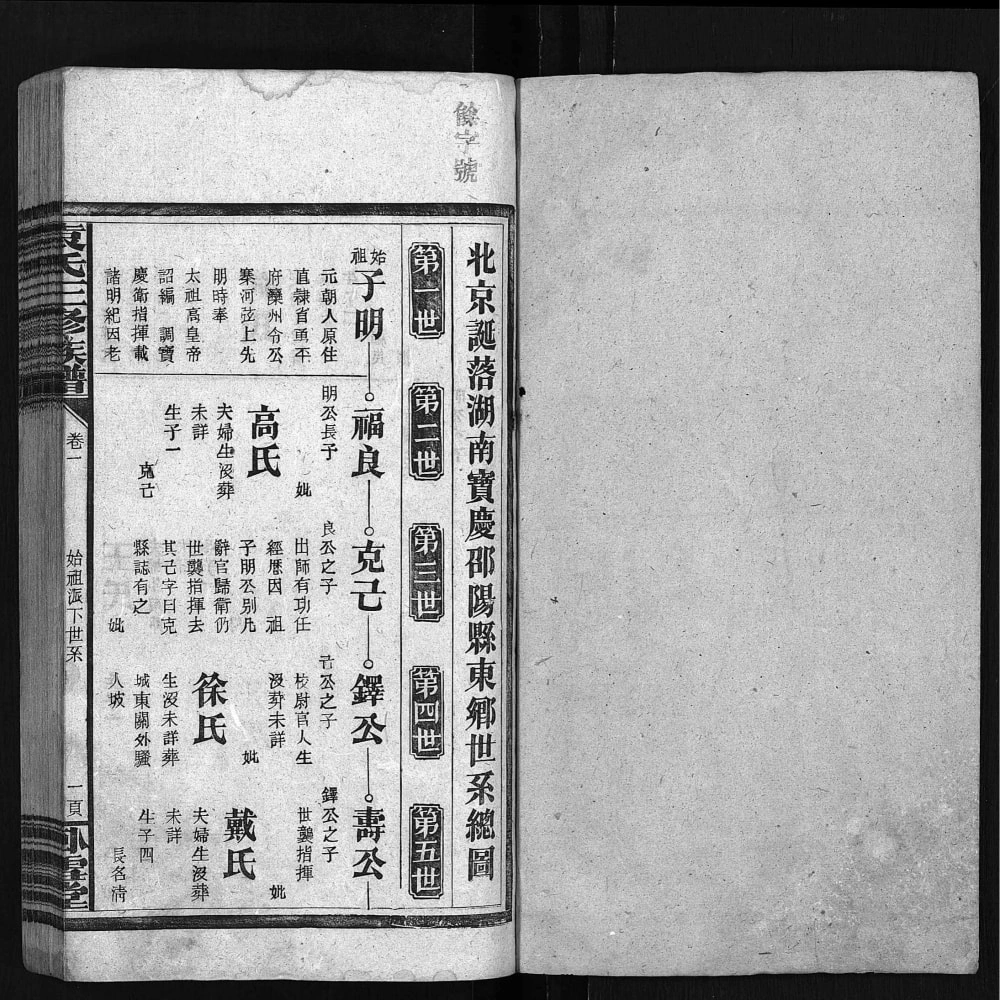 餘字號
北京誕落湖南寶慶邵陽縣東鄉世系總圖
第一世
第二世
第三世
第四世
第五世
始祖
子明
元朝人原住
直隸省永平
府灤州令公
寨河弦上先
明時奉
太祖高皇帝
詔編　調寶
慶衛指揮載
諸明紀因老
福良
明公長子
妣
高氏
夫婦生沒葬
未詳
生子一
克己
克己
良公之子
出師有功任
經歷因　祖
子明公別凡
辭官歸衛仍
世襲指揮去
其己字曰克
縣誌有之
妣
鐸公
己公之子
校尉官人生
沒葬未詳
妣
徐氏
生沒未詳葬
城東關外騷
人坡
壽公
鐸公之子
世襲指揮
妣
戴氏
夫婦生沒葬
未詳
生子四
長名清
袁氏三修族譜
卷一
始祖派下世系
一頁
臥雪堂